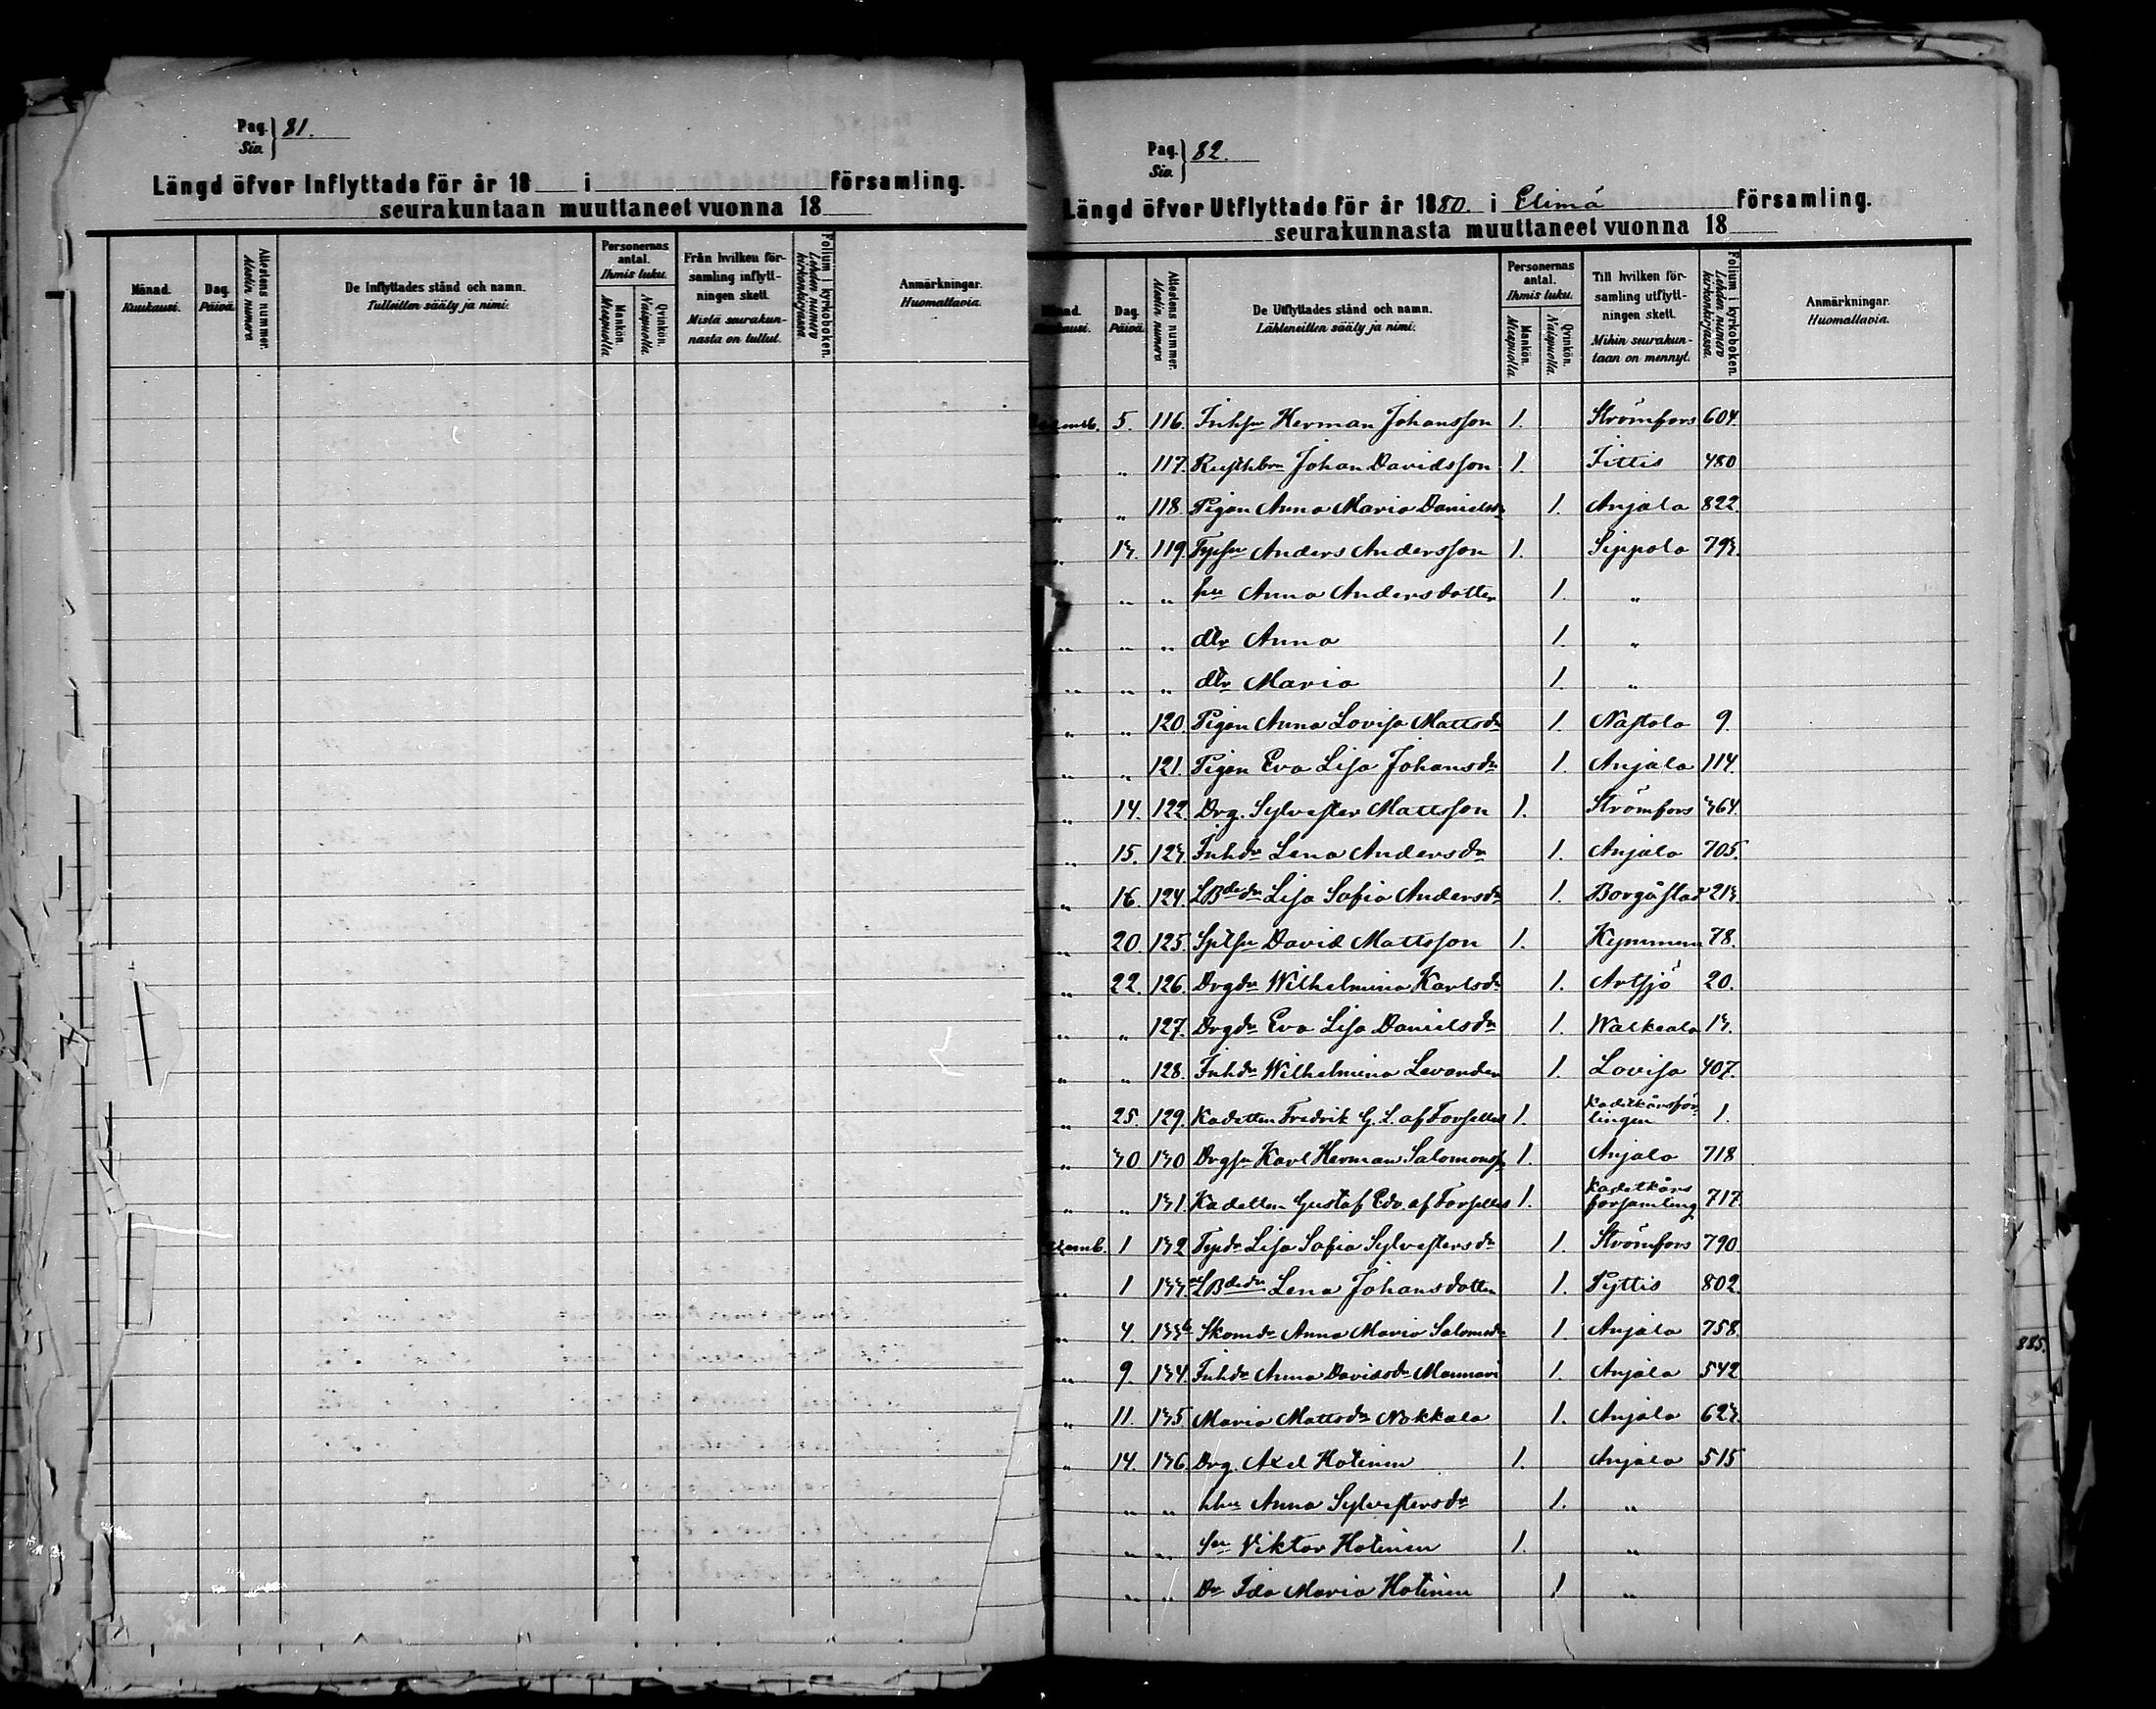 Pag. 81.
Siv.
Längd öfver Inflyttade för år 18 i församling.
seurakuntaan muuttaneet vuonna 18
Månad. Kuukausi.
Dag. Päivä.
Attestens nummer. Atestin numero
De Inflyttades stånd och namn. Tulleitten sääty ja nimi.
Personernas antal. Ihmis luku.
Mankön. Miespuolta
Qvinkön. Naispuolta
Från hvilken församling inflyttningen skett. Mistä seurakunnasta on tullut.
Folium i kyrkoboken. Lehden numero kirkonkirjassa
Anmärkningar. Huomattavia.
Pag. 82.
Siv.
Längd öfver Utflyttade för år 1880. i Elimä församling.
seurakunnasta muuttaneet vuonna 18
Dag. Päivä.
Attestens nummer. Atestin numero
De Utflyttades stånd och namn. Lähteneitten sääty ja nimi.
Personernas antal. Ihmis luku.
Mankön. Miespuolta
Qvinkön. Naispuolta.
Till hvilken församling utflyttningen skett. Mihin seurakuntaan on mennyt.
Folium i kyrkoboken. Lehden numero kirkonkirjassa.
Anmärkningar. Huomattavia.
5. 116. Inhsn Herman Johansson 1. Strömfors 604.
„ „ 117. Rusthbrn Johan Davidsson 1. Pittis 480
„ „ 118. Pigan Anna Maria Danielsdr 1. Anjala 822.
„ 13. 119. Typsn Anders Andersson 1. Sippola 793.
„ „ hu Anna Andersdotter 1. „
„ „ „ dtr Anna 1. „
„ „ „ dtr Maria 1. „
„ „ 120. Pigan Anna Lovisa Mattsdr 1. Nastola 9.
„ „ 121. Pigan Eva Lisa Johansdr 1. Anjala 114.
„ 14. 122. Drg. Sylvester Mattsson 1. Strömfors 364.
„ 15. 123. Inhdr Lena Andersdr 1. Anjala 705.
„ 16. 124. LBdedr Lisa Sofia Andersdr 1. Borgåstad 213.
„ 20. 125. Sptsn David Mattsson 1. Kymmene 78.
„ 22. 126. Drgdr Wilhelmina Karlsdr 1. Artsjö 20.
„ „ 127. Drgdr Eva Lisa Danielsdr 1. Walkeala 13.
„ „ 128. Inhdr Wilhelmina Levander 1. Lovisa 407.
„ 25. 129. Kadetten Fredrik G. L. af Forselles 1. 1.
„ 30 130 Drgsn Karl Herman Salomonss 1. Anjala 718
„ „ 131. Kadetten Gustaf Edv. af Forselles 1. Kadetkårs församling 717.
1 132 Typdr Lisa Sofia Sylvestersdr 1. Strömfors 790
„ 1 133a LBdedr Lena Johansdotter 1. Pyttis 802.
„ 4. 133b Skomdr Anna Maria Salomsdr 1. Anjala 758.
„ 9. 134. Inhdr Anna Davidsdr Mannari 1. Anjala 542
„ 11. 135 Maria Mattsdr Nokkala 1. Anjala 623.
„ 14. 136. Drg. Axel Hotinen 1. Anjala 515
„ „ hu Anna Sylvestersdr 1. „
„ „ Sn Viktor Hotinen 1. „
„ „ Dr Ida Maria Hotinen 1 „
885.